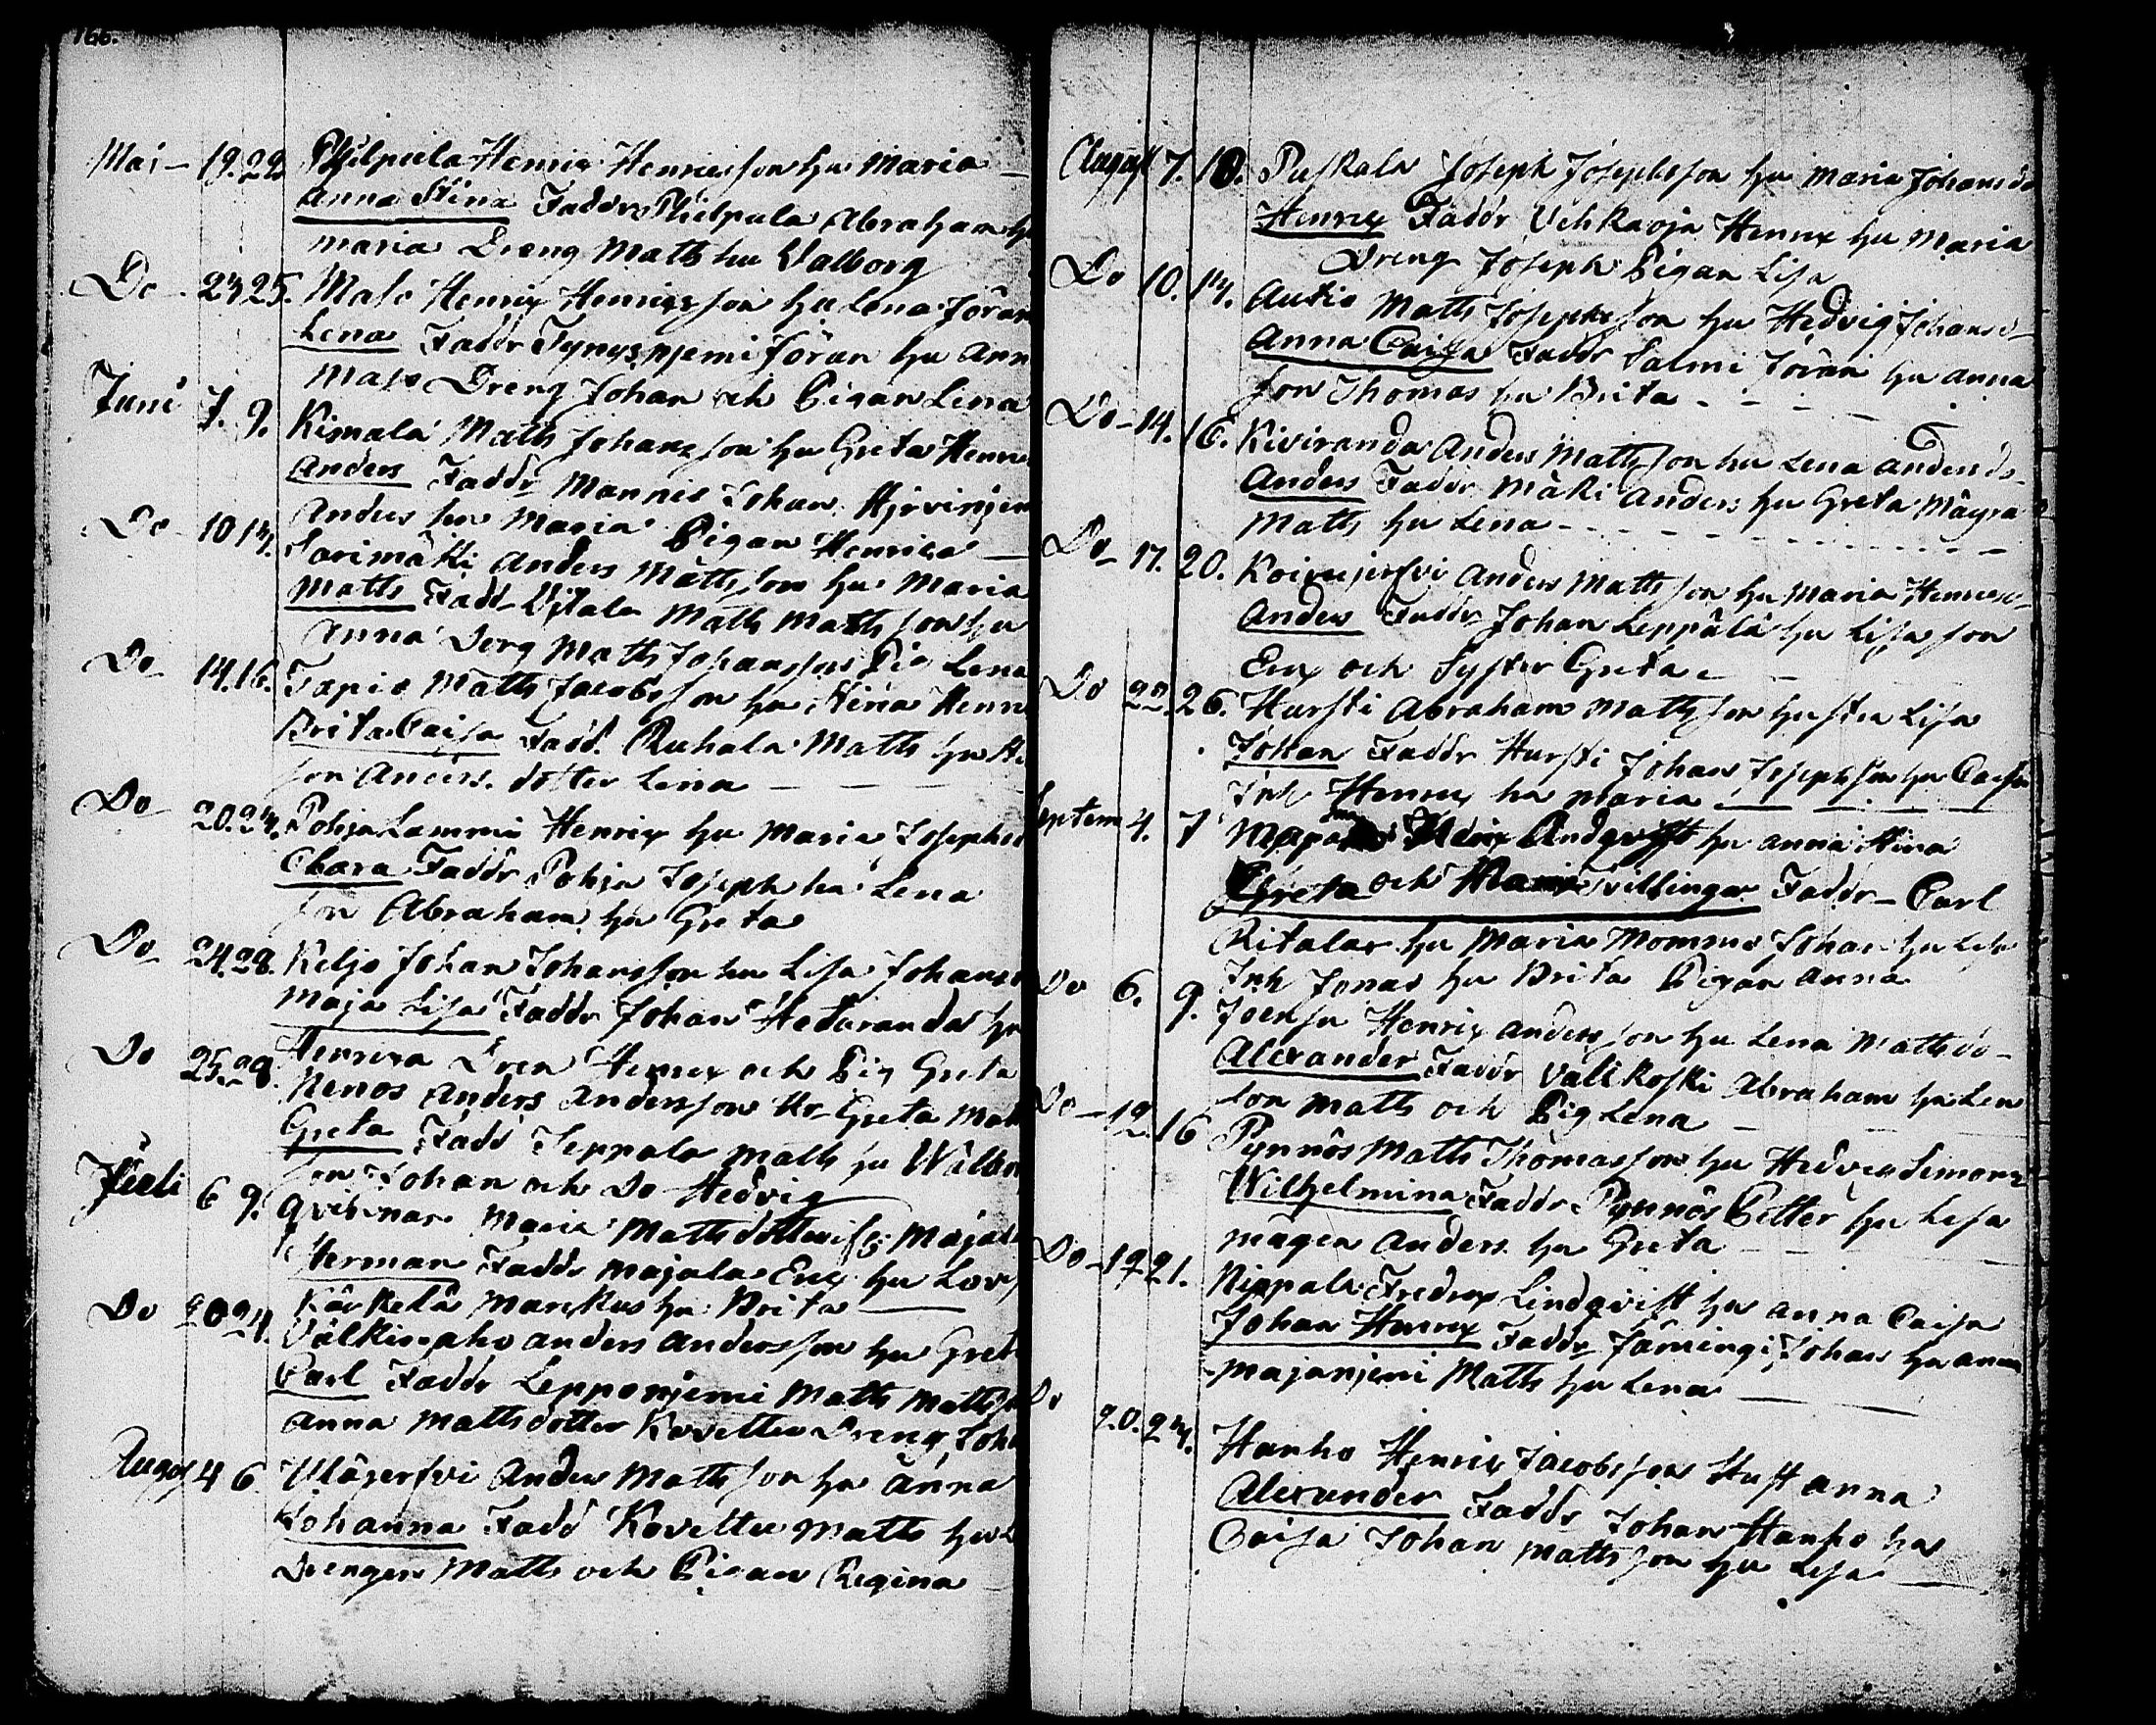 166.
Mai - 19. 29. Philpula Henrix Henricsson hu Maria
Anna Stina Faddr Philpula Abraham hu
Maria Dreng Matts hu Valborg
Do - 24 25. Malo Henrix Henricsson hu Lena Jöran
Lena Faddr Jöran hu Ann
Malo Dreng Johan och Pigan Lena
Juni 7. 9. Kismala Matts Johansson hu Greta Henri
Anders Faddr Mannis Johan
Anders hu Maria Pigan Henrica
Do - 10 14. Sarimäki Anders Mattsson hu Maria
Matts Fadd Matts Mattsson hu
Anna Matts Johansson Pig Lena
Do 14. 16. Tapio Matts Jacobsson hu Stina Henri
Brita Caisa Fadd. Ruhala Matts hu
son Anders. dotter Lena
Do 20. 24. Pohjalammi Henrix hu Maria Josephs
Clara Faddr Pohja Joseph hu Lena
son Abraham hu Greta
Do 24. 28. Keljo Johan Johansson hu Lisa Johans
Maja Lisa Faddr Johan Hietaranda hu
Henrica Dren Henrix och Pig Greta
Do 25. 28. Nenos Anders Andersson hu Greta Mat
Greta Fadd Seppala Matts hu Walbor
son Johan och Do Hedvig
Juli 6 9. Maria Mattsdotter Majala
Herman Faddr Majala Eric hu Lov
Kärkelä Marckus hu Brita
Do 20 24. Välkinpho Anders Andersson hu Greta
Carl Faddr Lepponjemi Matts Matts
Anna Mattsdotter Kovettu Dreng Joh
August 4 6. Anders Mattsson hu Anna
Johanna Fadd Kovettu Matts hu L
Drengen Matts och Pigan Regina
August 7. 10. Puskala Joseph Josephsson hu Maria Johansd
Henrix Faddr Vehkaoja Henrix hu Maria
Dreng Joseph Pigan Lisa
Do 10. 14. Autio Matts Josephsson hu Hedvig Johansd
Anna Caisa Faddr Salmi Jöran hu Anna
son Thomas hu Brita
Do - 14. 16. Kiviranda Anders Mattsson hu Lena Andersd
Anders Faddr Mäki Anders hu Greta Mågen
Matts hu Lena
Do - 17. 20. Koirujerfvi Anders Mattsson hu Maria Henricsd
Anders Faddr Johan Leppälä hu Lisa son
Eric och Syster Greta
Do 22. 26. Hursti Abraham Mattsson hustru Lisa
Johan Faddr Hursti Johan Josephsson hu Caisa
Inh Henrix hu Maria
Septem 4. 7 Andqvist hu Anna Stina
Greta och Tvillingar Faddr - Carl
Ritalar hu Maria Mommo Johan hu Lisa
Inh Jonas hu Brita Pigan Anna
Do 6. 9. Joensu Henrix Andersson hu Lena Mattsdo
Alexander Faddr Välikoski Abraham hu Len
son Matts och Pig Lena
Do - 12. 16 Pynnös Matts Thomasson hu Hedvig Simons
Wilhelmina Faddr Pynnös Petter hu Lisa
mågen Anders hu Greta
Do - 19 21. Nippala Fredrix Lindqvist hu Anna Caisa
Johan Henrix Faddr Jämingi Johan hu Anna
Majanjemi Matts hu Lena
Do 20. 24. Hanho Henrix Jacobsson Hust Anna
Alexander Faddr Johan Hanho hu
Caisa Johan Mattsson hu Lisa